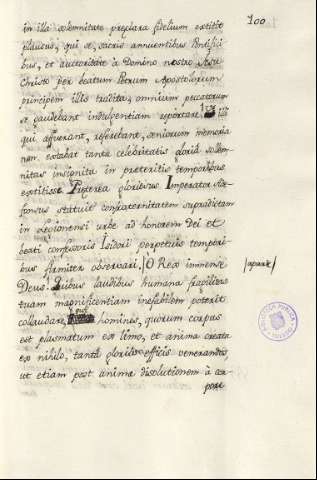 100
in illa solemnitate preplara fidelium extitit
plausus, qui se, sacris annuentibus Pontifici
bus, et auctoritate à Domino nostro Jesu
Christo per beatum Petrum Apostolorum
principem illis tradita, omnium peccatorum
se gaudebant indulgentiam reportare. Illi
qui afuerant, referebant, seniorum memoria
non extabat tanta celebritatis gloria solem
nitas insignita in preteritis temporibus
extitisse. Preterea gloriosus Imperator Ade
fonsus statuit confraternitatem supradictam
in Legionensi urbe ad honorem Dei et
beati confessoris Isidori perpetuis tempori
bus firmiter observari. O Rex immense
aparte
Deus, quibus laudibus humana fragilitas
tuam magnificentiam inefabilem poterit
collaudare, qui hominis, quorum corpus
est plasmatum ex limo, et anima creata
ex nihilo, tanta gloria efficis venerandos,
ut etiam post anima disolutionem à cor
pore